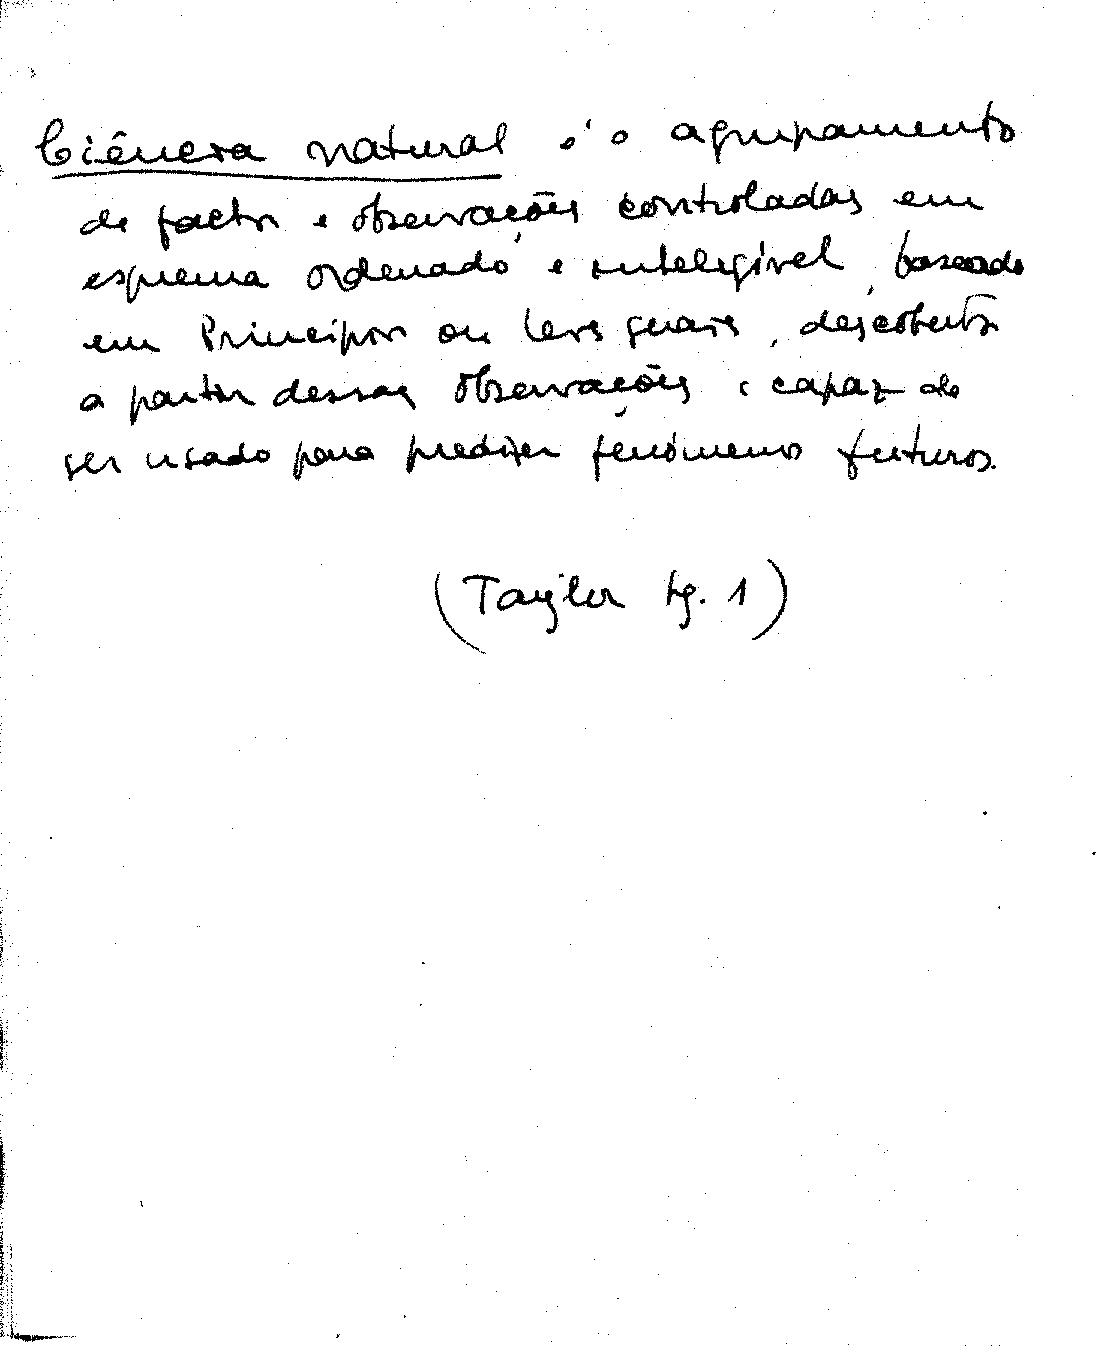 Ciência natural é o agrupamento
de factos e observações controladas em
esquema ordenado e inteligível, baseado
em Princípios ou leis gerais, descobertos
a partir dessas observações e capaz de
ser usado para predizer fenómenos futuros.
(Taylor pg. 1)